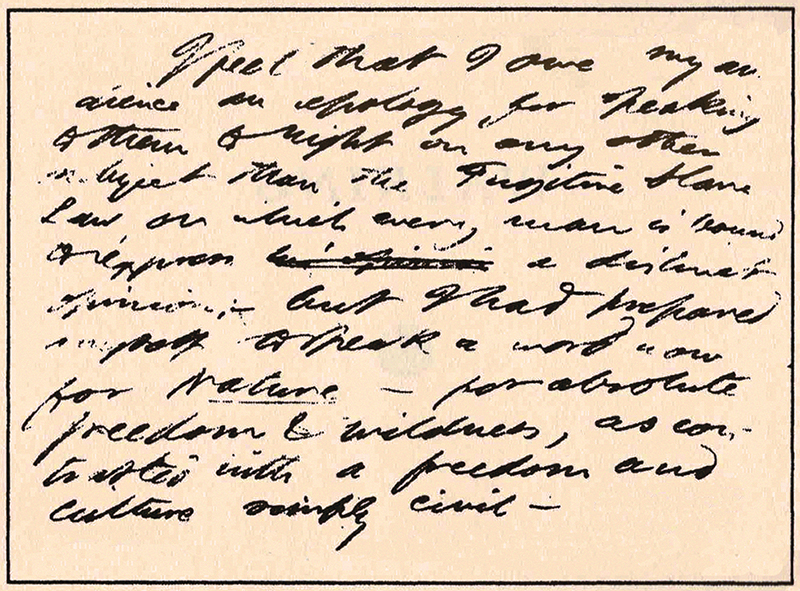 I feel that I owe my au
dience an apology for speaking
to them to night on any other
subject than the Fugitive Slave
Law on which every man is bound
to express his opinion a distinct
opinion,— but I had prepared
myself to speak a word now
for Nature — for absolute
freedom & wildness, as con-
trasted with a freedom and
culture simply civil —